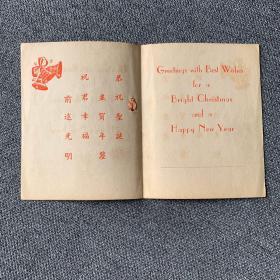 恭祝聖誕
並賀年釐
祝君幸福
前途光明
Greetings with Best Wishes
for a
Bright Christmas
and a
Happy New Year